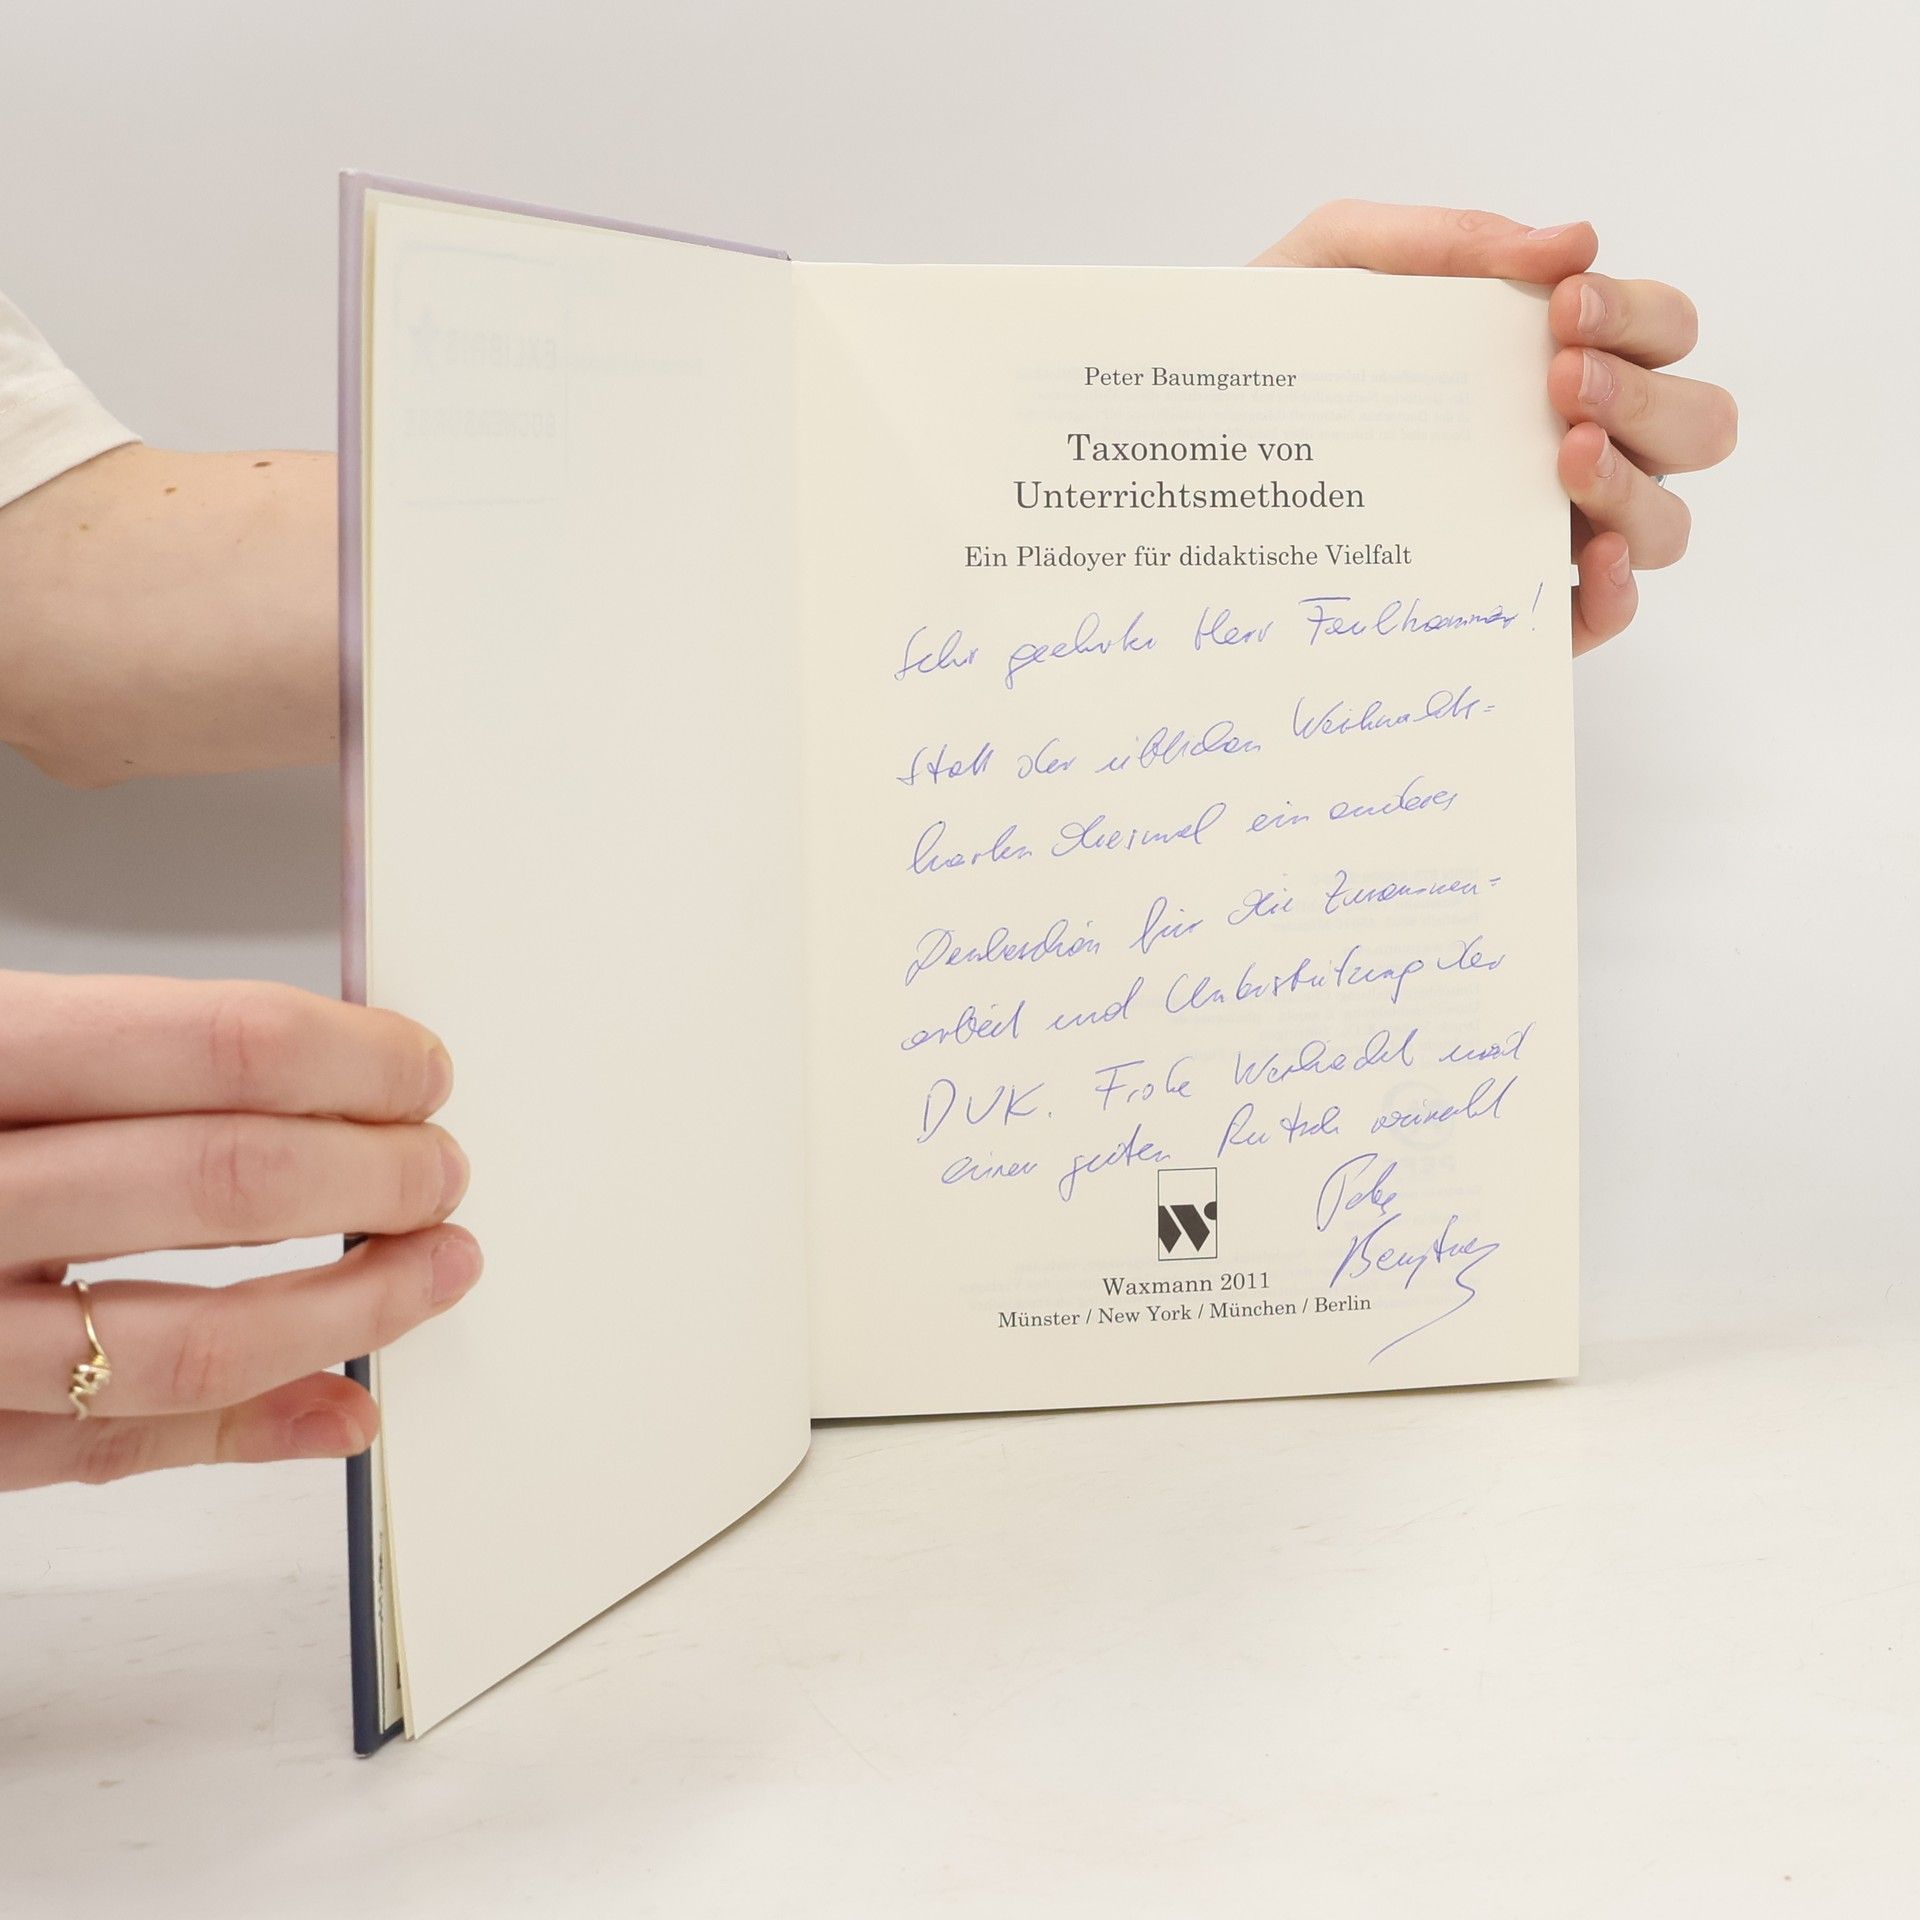 Peter Baumgartner
Taxonomie von
Unterrichtsmethoden
Ein Plädoyer für didaktische Vielfalt
Sehr geehrter Herr Faulhammer!
Statt der üblichen Weihnachts=
karten diesmal ein anderes
Dankeschön für die Zusammen=
arbeit und Unterstützung der
DUK. Frohe Weihnacht und
einen guten Rutsch wünscht
Peter
Baumgartner
W
Waxmann 2011
Münster / New York / München / Berlin